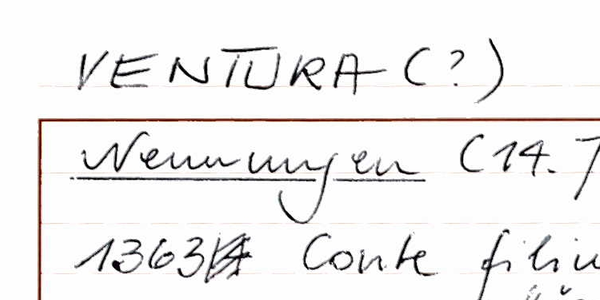 VENTURA (?)
Nennungen (14.
1363 Conte filiu